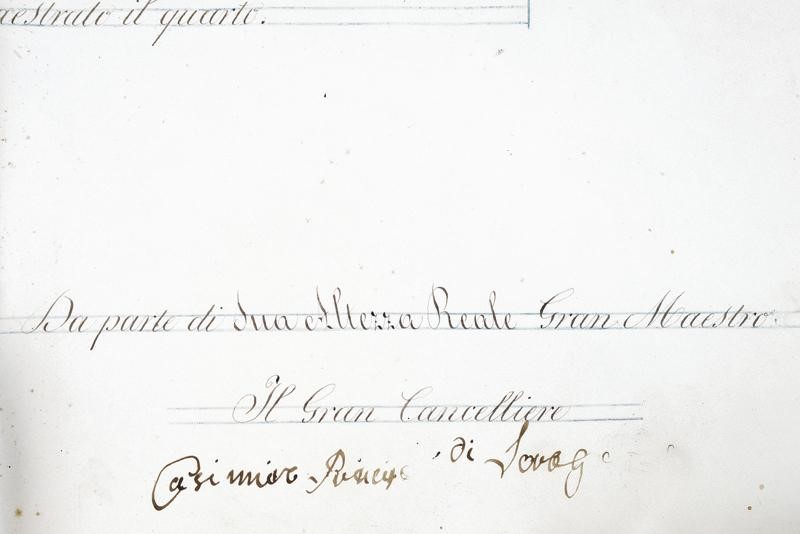 aestrato il quarto.
Da parte di Sua Altezza Reale Gran Maestro.
Il Gran Cancelliere
Casimiro di